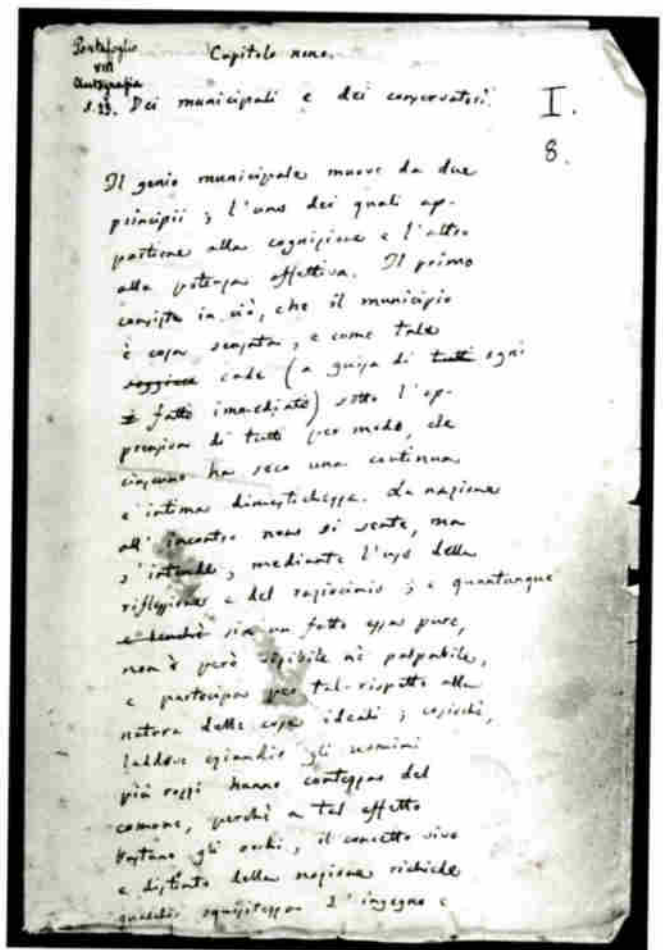 Portafoglio
VIII
Autografia
Capitolo nono.
Dei municipali e dei conservatori.
I.
8.
Il genio municipale muove da due
principii ; l'uno dei quali ap-
partiene alla cognizione e l'altro
alla potenza affettiva. Il primo
consiste in ciò, che il municipio
è cosa sensata, e come tale
soggiace cade (a guisa di tutti ogni
è fatto immediato) sotto l'ap-
prensiva di tutti per modo, che
ciascuno ha seco una continua
e intima dimestichezza. La nazione
all' incontro non si sente, ma
s'intende, mediante l'uso della
riflessione e del raziocinio ; e quantunque
e benchè sia un fatto essa pure,
non è però visibile nè palpabile,
e partecipa per tal rispetto alla
natura delle cose ideali ; cosicchè,
laddove eziandio gli uomini
più rozzi hanno contezza del
comune, perchè a tal effetto
bastano gli occhi, il concetto vivo
e distinto della nazione richiede
qualche squisitezza d'ingegno e